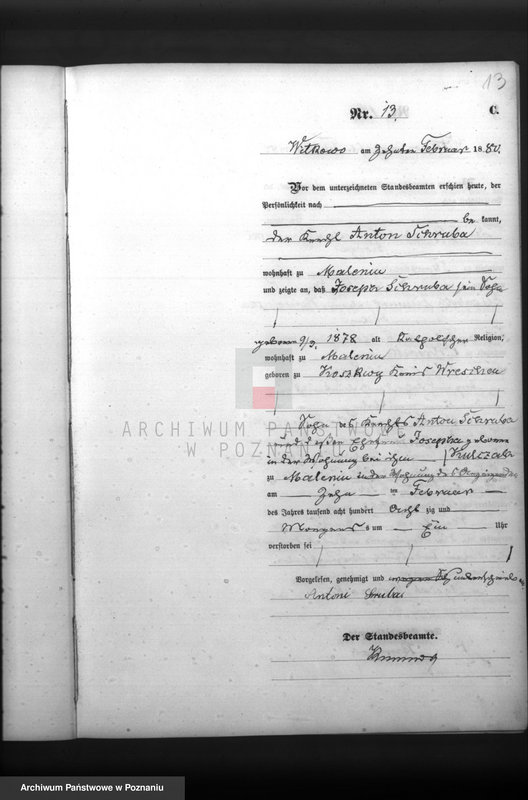 13
Nr. 13. C.
Witkowo am Zehnten Februar 1880.
Vor dem unterzeichneten Standesbeamten erschien heute, der
Persönlichkeit nach
be kannt,
der Knecht Anton Schruba
wohnhaft zu Malenin
und zeigte an, daß Joseph Schruba sein Sohn
geboren 9/3. 1878 alt Katholischer Religion,
wohnhaft zu Malenin
geboren zu Kreis Wreschen
Sohn des Knechts Anton Schruba
und dessen Ehefrau Josepha geborene
in der Wohnung bei ihm Kulczak
zu Malenin in der Wohnung des
am Zehn ten Februar
des Jahres tausend acht hundert Acht zig und
Morgens um Ein Uhr
verstorben sei
Vorgelesen, genehmigt und unterschrieben
Antoni Sruba
Der Standesbeamte.
ARCHIWUM PAŃSTWOWE
W POZNANIU
Archiwum Państwowe w Poznaniu